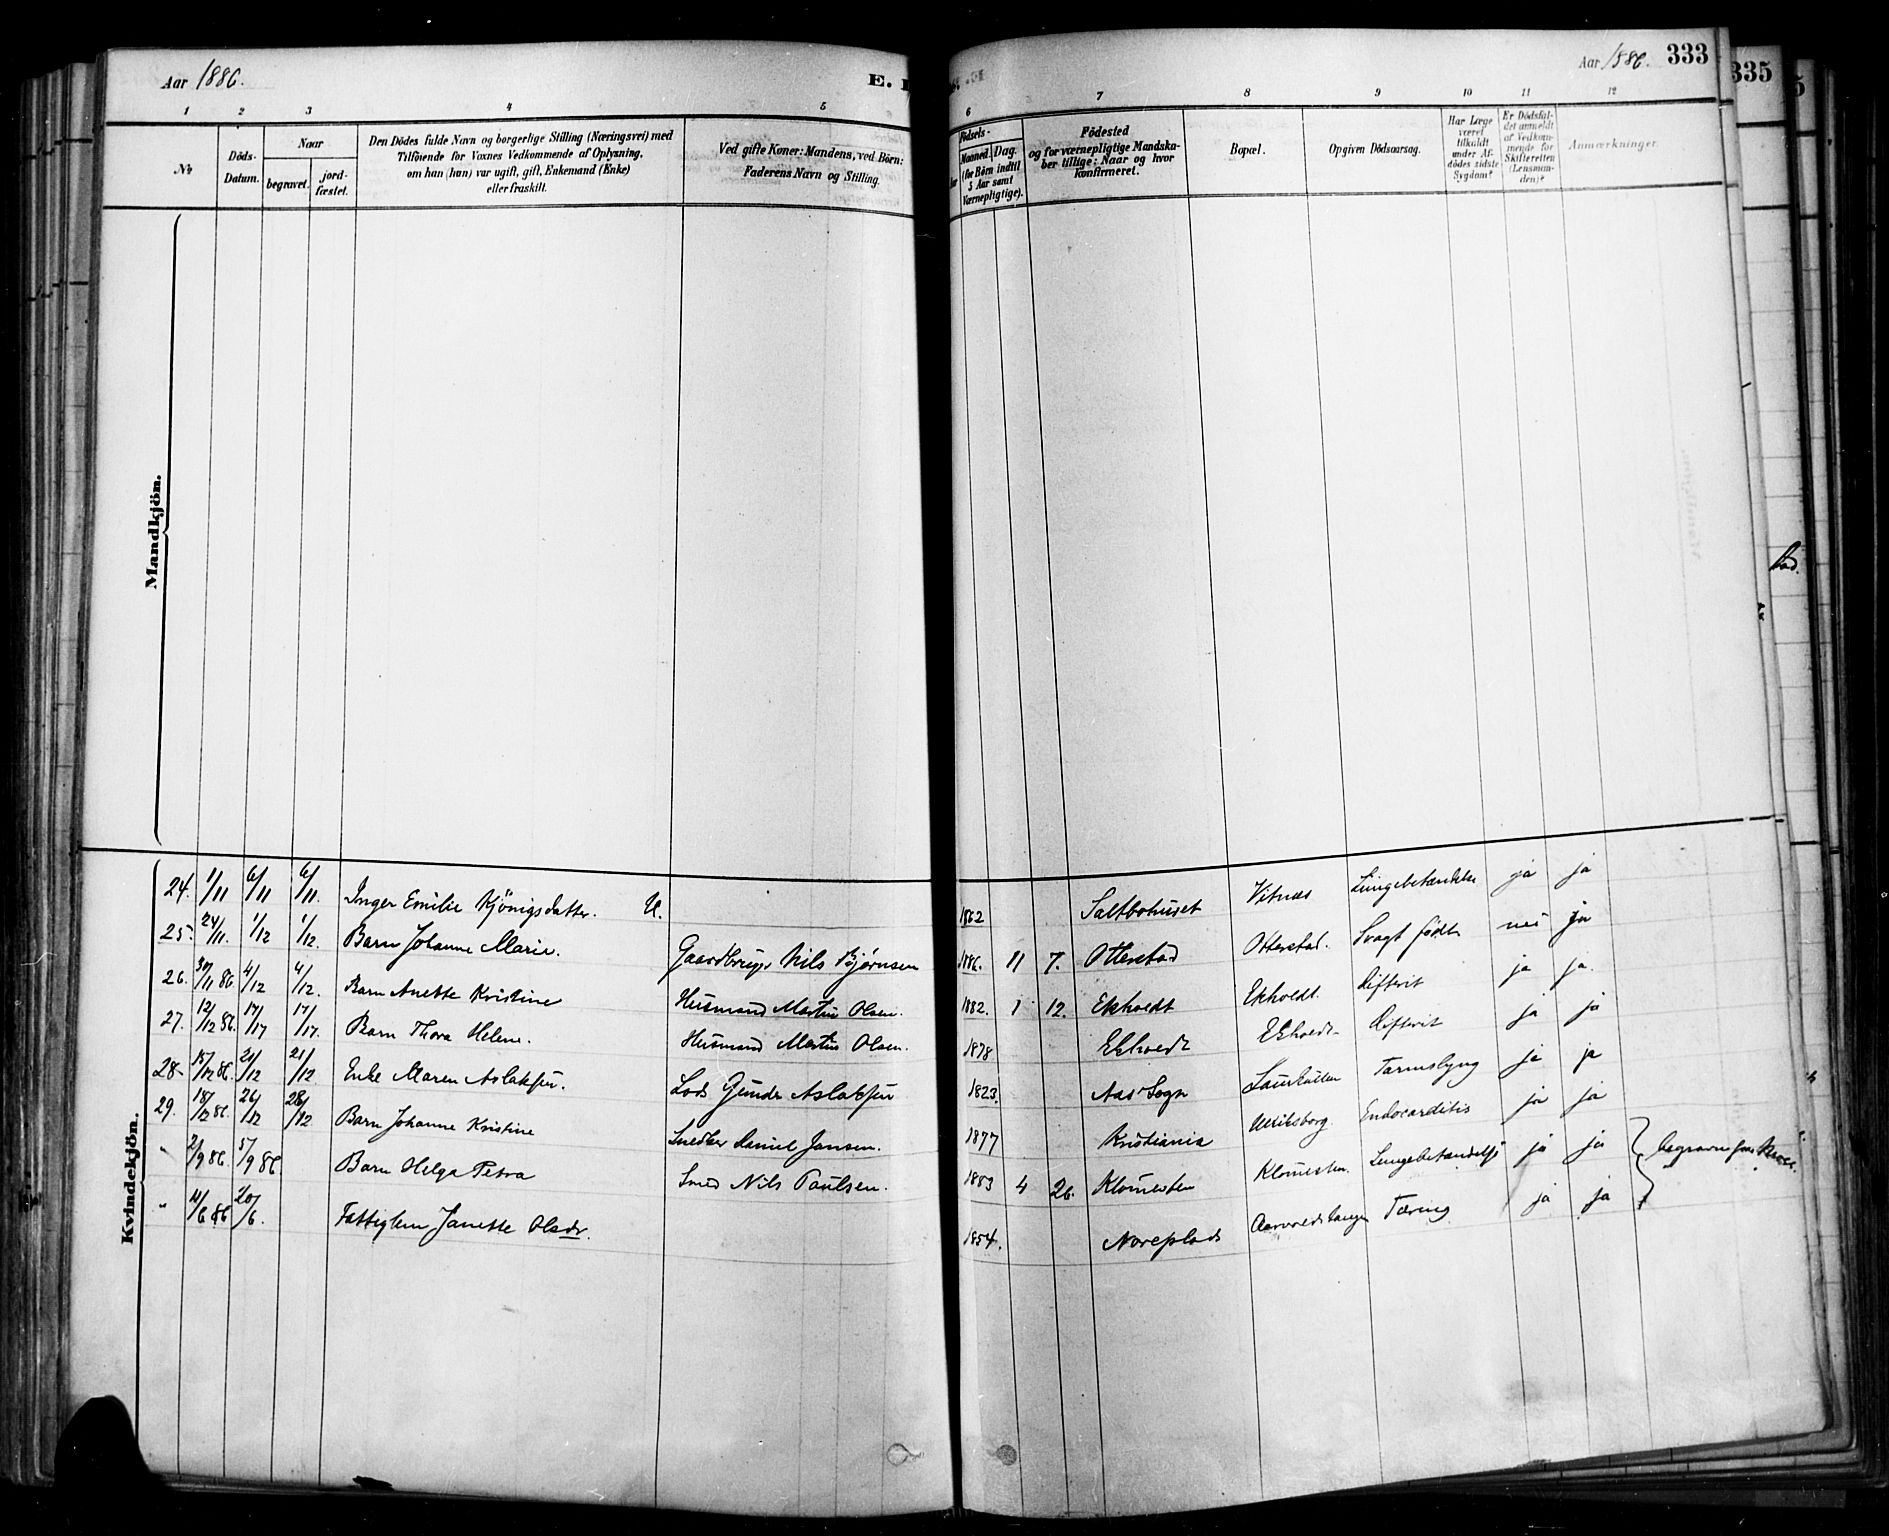 Aar 1886.
E.
1 2 3 4 5
No
Döds-Datum.
Naar
begravet.
jord-fæstet.
Den Dödes fulde Navn og borgerlige Stilling (Næringsvei) med
Tilföiende for Voxnes Vedkommende af Oplysning,
om han (hun) var ugift, gift, Enkemand (Enke)
eller fraskilt.
Ved gifte Koner: Mandens, ved Börn:
Faderens Navn og Stilling.
Aar 1886. 333
335
6 7 8 9 10 11 12
Födsels-
Maaned. Dag.
(for Börn indtil
5 Aar samt
Værnepligtige).
Födested
og for værnepligtige Mandska-
ber tillige: Naar og hvor
konfirmeret.
Bopæl.
Opgiven Dödsaarsag.
Har Læge
været
tilkaldt
under Af-
dödes sidste
Sygdom?
Er Dödsfal-
det anmeldt
af Vedkom-
mende for
Skifteretten
(Lensman-
den)?
Anmærkninger.
Mandkjön.
Kvindekjön.
24. 1/11 6/11 6/11. Inger Emilie Kjönigsdatter. U. 1862 Saltbohuset Vitnæs ja ja
25. 24/11. 1/12 1/12. Barn Johanne Marie. Gaardbruger Nils Bjørnsen 1886. 11 7. Otterstad Otterstad. Svagt født nei ja
26. 30/11 86. 4/12 4/12. Barn Anette Kristine Husmand Martin Olsen. 1882. 1 12. Ekholdt Ekholdt. difterit ja ja.
27. 12/12 86. 17/17 17/17. Barn Thora Helene. Husmand Martin Olsen. 1878 Ekholdt Ekholdt difterit ja ja
28. 15/12 86. 21/12 21/12 Enke Maren Aslaksen. Lods Gunder Aslaksen 1823. Aas Sogn Tarmslyng ja ja
29. 18/12 86. 26/12 28/12 Barn Johanne Kristine Snedker Daniel Jansen. 1877 Kristiania Endocarditis ja ja
" 2/9 86. 5/9 86. Barn Helga Petra Smed Nils Paulsen. 1883 4 26. Klommesten Klommesten. Lungebetændelse ja ja
" 11/6 86 20/6. Fattiglem Janette Olsdr. 1854. Noreplads Tæring ja ja